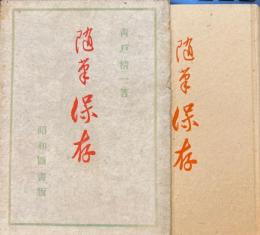 青戸精一著
随筆保存
昭和圖書版
随筆保存